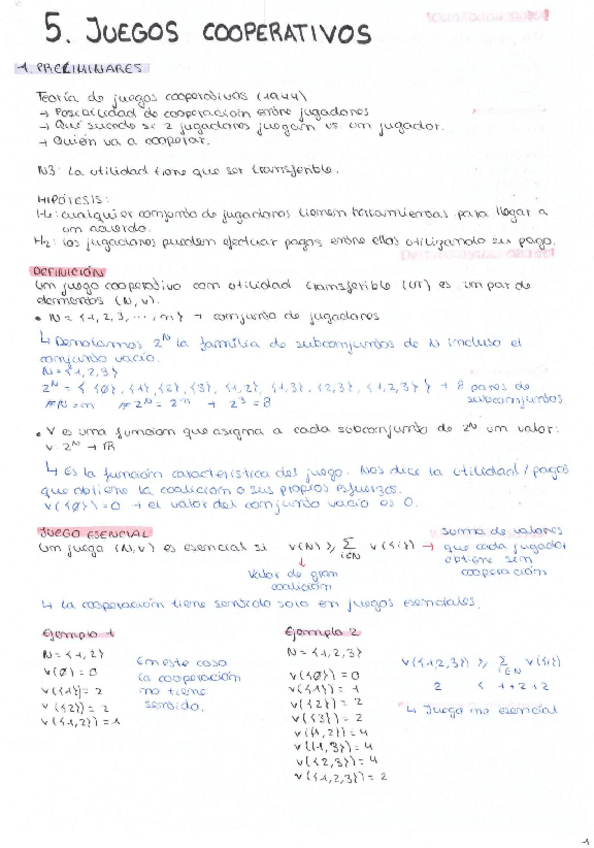 5. JUEGOS COOPERATIVOS
1. PRELIMINARES
Teoría de juegos cooperativos (1944)
→ Posibilidad de cooperación entre jugadores
→ Qué sucede si 2 jugadores juegan vs. un jugador.
→ Quién va a cooperar.
NB: La utilidad tiene que ser transferible.
HIPÓTESIS:
H1: cualquier conjunto de jugadores tienen herramientas para llegar a
un acuerdo.
H2: los jugadores pueden efectuar pagos entre ellos utilizando su pago.
DEFINICIÓN
Un juego cooperativo con utilidad transferible (UT) es un par de
elementos (N, v).
• N = {1, 2, 3, ..., n} → conjunto de jugadores
↳ Denotamos 2^N la familia de subconjuntos de N incluso el
conjunto vacío.
N = {1, 2, 3}
2^N = { {∅}, {1}, {2}, {3}, {1,2}, {1,3}, {2,3}, {1,2,3} } → 8 pares de
subconjuntos
#N = n #2^N = 2^n → 2^3 = 8
• V es una funcion que asigna a cada subconjunto de 2^N un valor:
v: 2^N → ℝ
↳ Es la función característica del juego. Nos dice la utilidad / pagos
que obtiene la coalición a sus propios esfuerzos.
v({∅}) = 0 → el valor del conjunto vacío es 0.
JUEGO ESENCIAL
Un juego (N, v) es esencial si v(N) ≥ Σ i∈N v({i}) → suma de valores
que cada jugador
obtiene sin
cooperación
↓
Valor de gran
coalición
↳ La cooperación tiene sentido solo en juegos esenciales.
Ejemplo 1
N = {1, 2}
v(∅) = 0
v({1}) = 2
v({2}) = 2
v({1,2}) = 1
En este caso
la cooperación
no tiene
sentido.
Ejemplo 2
N = {1, 2, 3}
v({∅}) = 0
v({1}) = 1
v({2}) = 2
v({3}) = 2
v({1,2}) = 4
v({1,3}) = 4
v({2,3}) = 4
v({1,2,3}) = 2
v({1,2,3}) ≥ Σ i∈N v({i})
2 < 1 + 2 + 2
↳ Juego no esencial
1